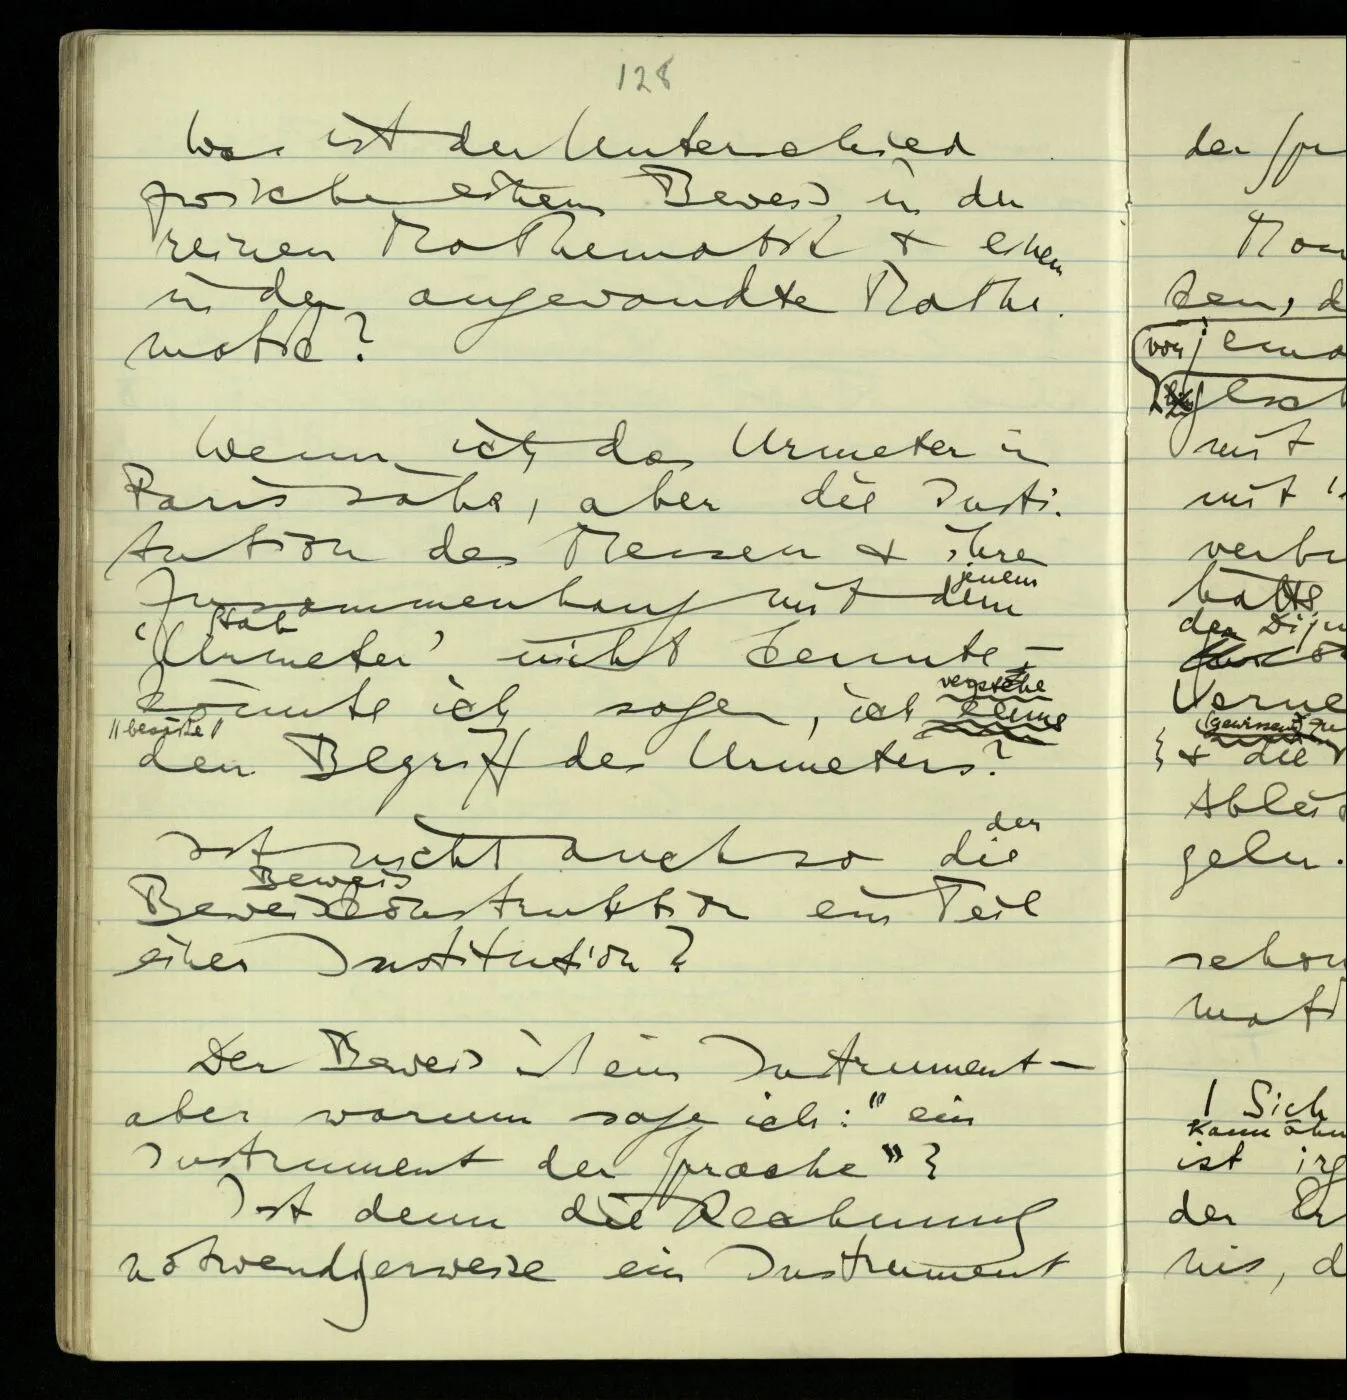 128
Was ist der Unterschied
zwischen einem Beweis in der
reinen Mathematik & einem
in der angewandte Mathe-
matik?
Wenn ich das Urmeter in
Paris sähe, aber die Insti-
tution des Messen & ihren
jenem
Zusammenhang mit dem
Stab
'Urmeter' nicht kennte –
verstehe
könnte ich sagen, ich kenne
"besitze"
den Begriff des Urmeters?
der
Ist nicht auch so die
Beweis
Beweiskonstruktion ein Teil
einer Institution?
Der Beweis ist ein Instrument –
aber warum sage ich: "ein
Instrument der Sprache"?
Ist denn die Rechnung
notwendigerweise ein Instrument
der Spr
sen, d
von jema
gesch
mit
mit
verbu
hätte
Verne
& die
Ablei
geln.
schon
mati
Sich
kann
ist irg
der
nis, d